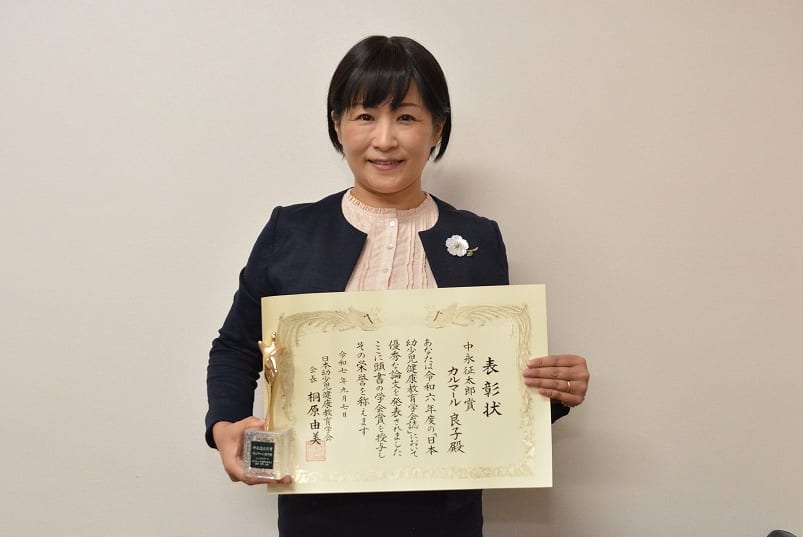 表彰状
中永征太郎賞
カルマール 良子殿
あなたは令和六年度の「日本
幼少児健康教育学会誌」において
優秀な論文を発表されました
ここに頭書の学会賞を授与し
その栄誉を称えます
令和七年九月七日
日本幼少児健康教育学会
会長 桐原由美